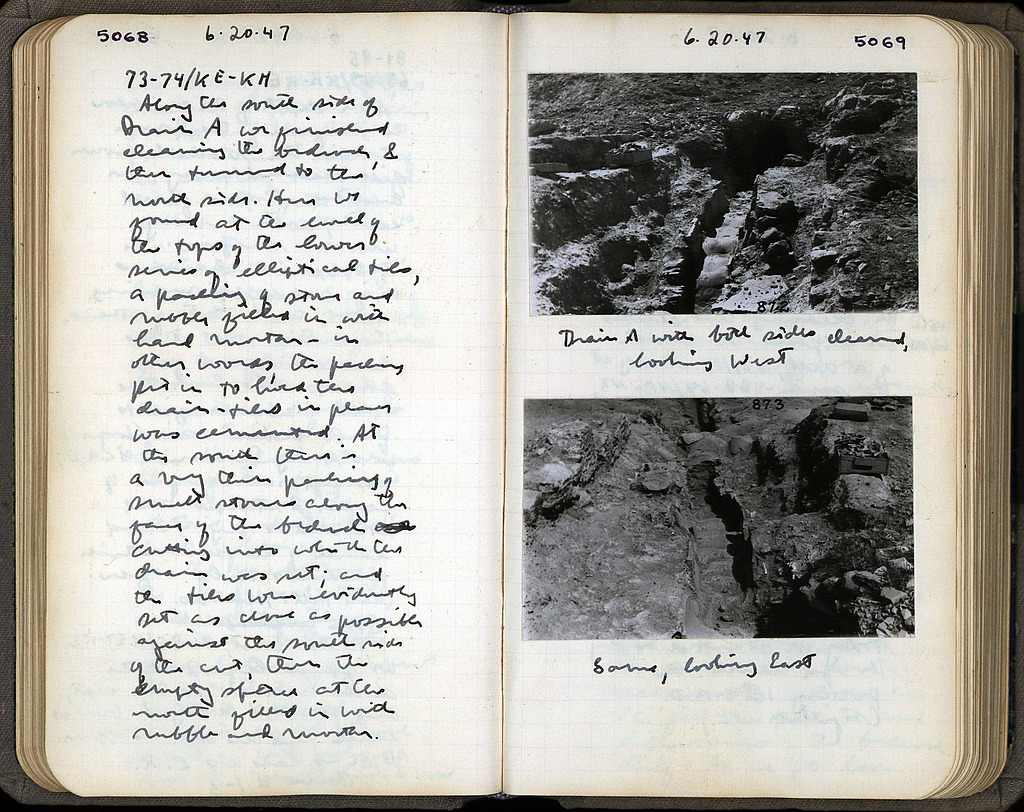 5068 6·20·47
73-74/KE-KH
Along the south side of
Drain A we finished
clearing the bedrock, &
then turned to the
north side. Here we
found at the level of
the tops of the lower
series of elliptical tiles,
a packing of stone and
rubble filled in with
hard mortar - in
other words, the packing
put in to hold the
drain-tiles in place
was cemented. At
the south there is
a very thin packing of
small stones along the
face of the bedrock
cutting into which the
drain was set; and
the tiles were evidently
set as close as possible
against the south side
of the cut, then the
empty space at the
north filled in with
rubble and mortar.
6·20·47 5069
872
Drain A with both sides cleared,
looking West
873
Same, looking East